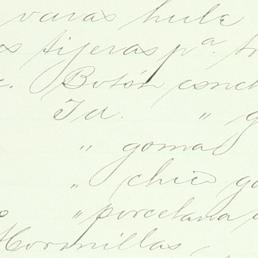 varas hule
s tijeras pª
c. Botón conch
Id. " g
" goma
" chico go
" porcelana
Hormillas